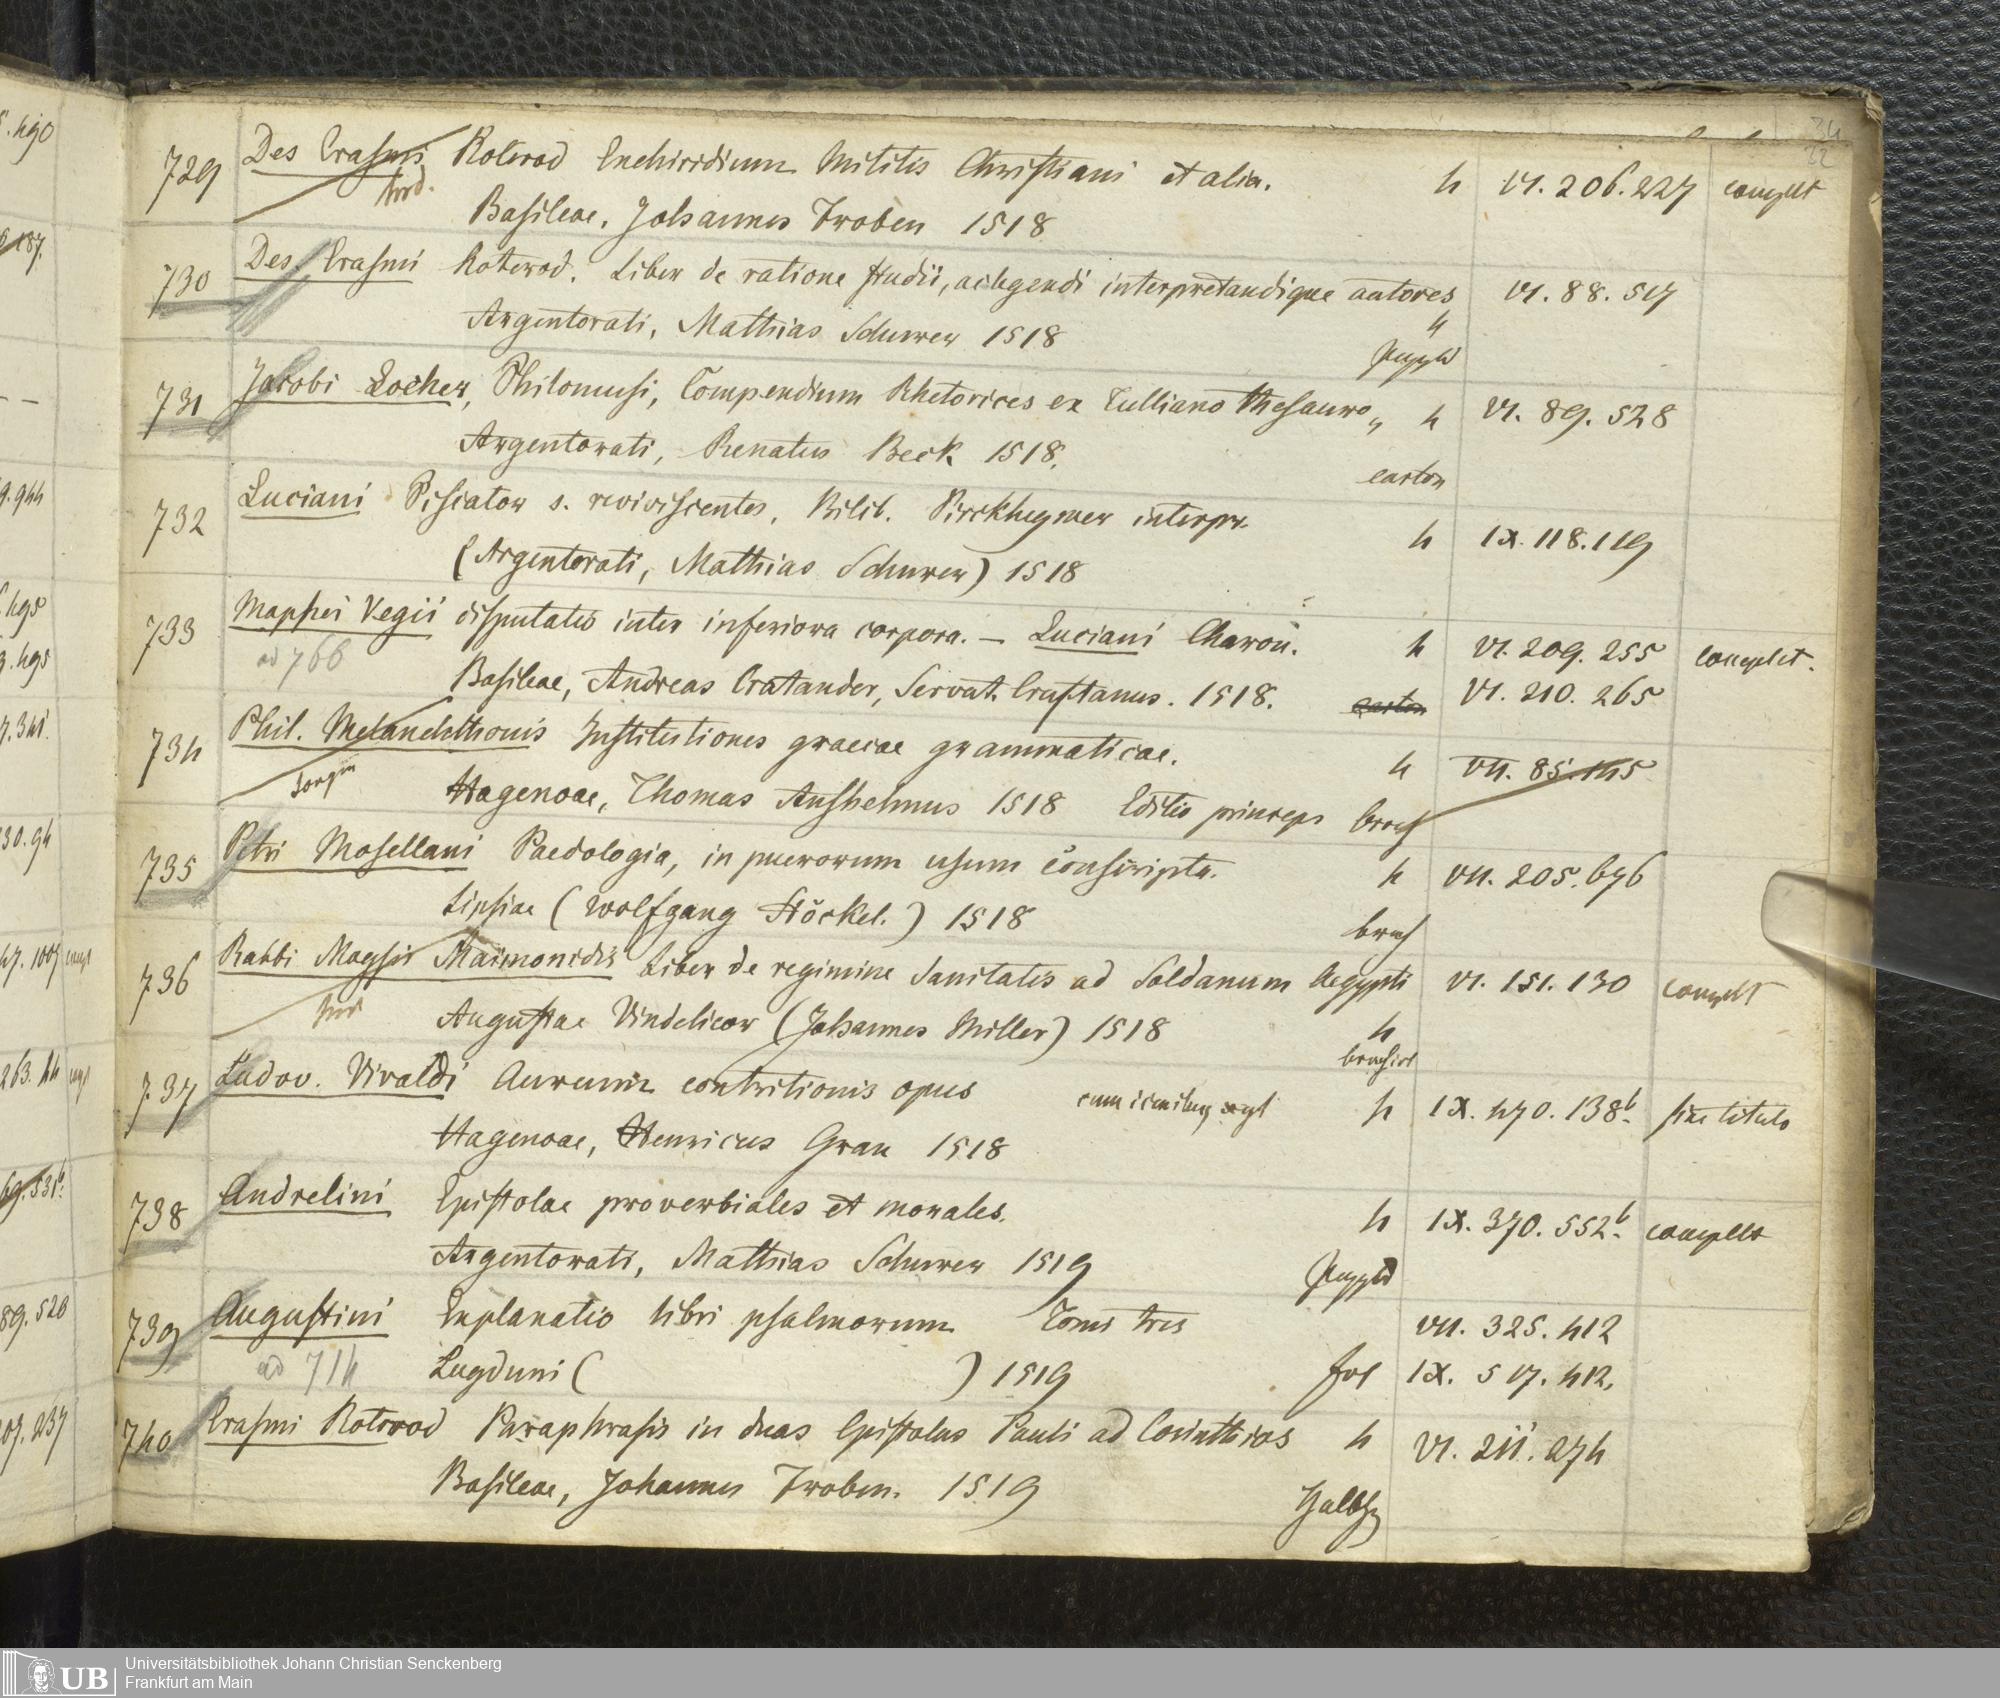 729 Des Erasmi Roterod Enchiridium Militis Christiani et alia. 4 VI. 206. 227 complt
Basileae, Johannes Froben 1518
730 Des. Erasmi Roterod. Liber de ratione studii, ac legendi interpretandique autores VI. 88. 517
Argentorati, Mathias Schurer 1518 4
Pappbd
731 Jacobi Locher, Philomusi, Compendium Rhetorices ex Tulliano thesauro 4 VI. 89. 528
Argentorati, Renatus Beck 1518. carton
732 Luciani Piscator s. reviviscentes, Bilib. Pirckheymer interpr. 4 IX. 118. 119
(Argentorati, Mathias Schurer) 1518
733 Maphei Vegii disputatio inter inferiora corpora. — Luciani Charon. 4 VI. 209. 255 complet.
ad 766 Basileae, Andreas Cratander, Servat. Cruftanus. 1518. carton VI. 210. 265
734 Phil. Melanchthonis Institutiones graecae grammaticae. 4 VII. 85. 145
Hagenoae, Thomas Anshelmus 1518 Editio princeps broch
735 Petri Mosellani Paedologia, in puerorum usum conscripta. 4 VII. 205. 696
Lipsiae (Wolfgang Stöckel.) 1518 broch
736 Rabbi Moysis Maimonidis Liber de regimine Sanitatis ad Soldanum Aegypti VI. 151. 130 complt
Augustae Vindelicor (Johannes Miller) 1518 4
brochirt
737 Ludov. Vivaldi Aureum contritionis opus 4 IX. 470. 138b. sine titulo
Hagenoae, Henricus Gran 1518
738 Andrelini Epistolae proverbiales et morales. 4 IX. 370. 552b. complet
Argentorati, Mathias Schurer 1519 Pappbd
739 Augustini Explanatio libri psalmorum Tomi tres VII. 325. 412
ad 714 Lugduni ( ) 1519 fol IX. 517. 412.
740 Erasmi Roterod Paraphrasis in duas Epistolas Pauli ad Corinthios 4 VI. 211. 274
Basileae, Johannes Froben. 1519 Halbfz
UB Universitätsbibliothek Johann Christian Senckenberg
Frankfurt am Main